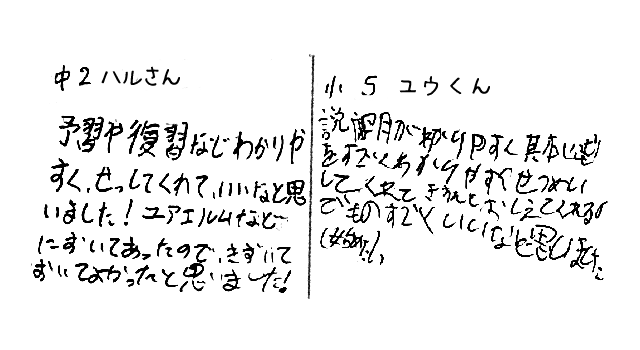 中2 ハルさん
予習や復習などわかりや
すく、せっしてくれて、いいなと思
いました！ユアエルムなど
にずいてあったので、きずいて
ずいてよかったと思いました！
小5 ユウくん
説明がわかりやすく基本
をすごくわかりやすくせつめい
してくれて きちんと おしえてくれる
でものすごくいいなと思いました